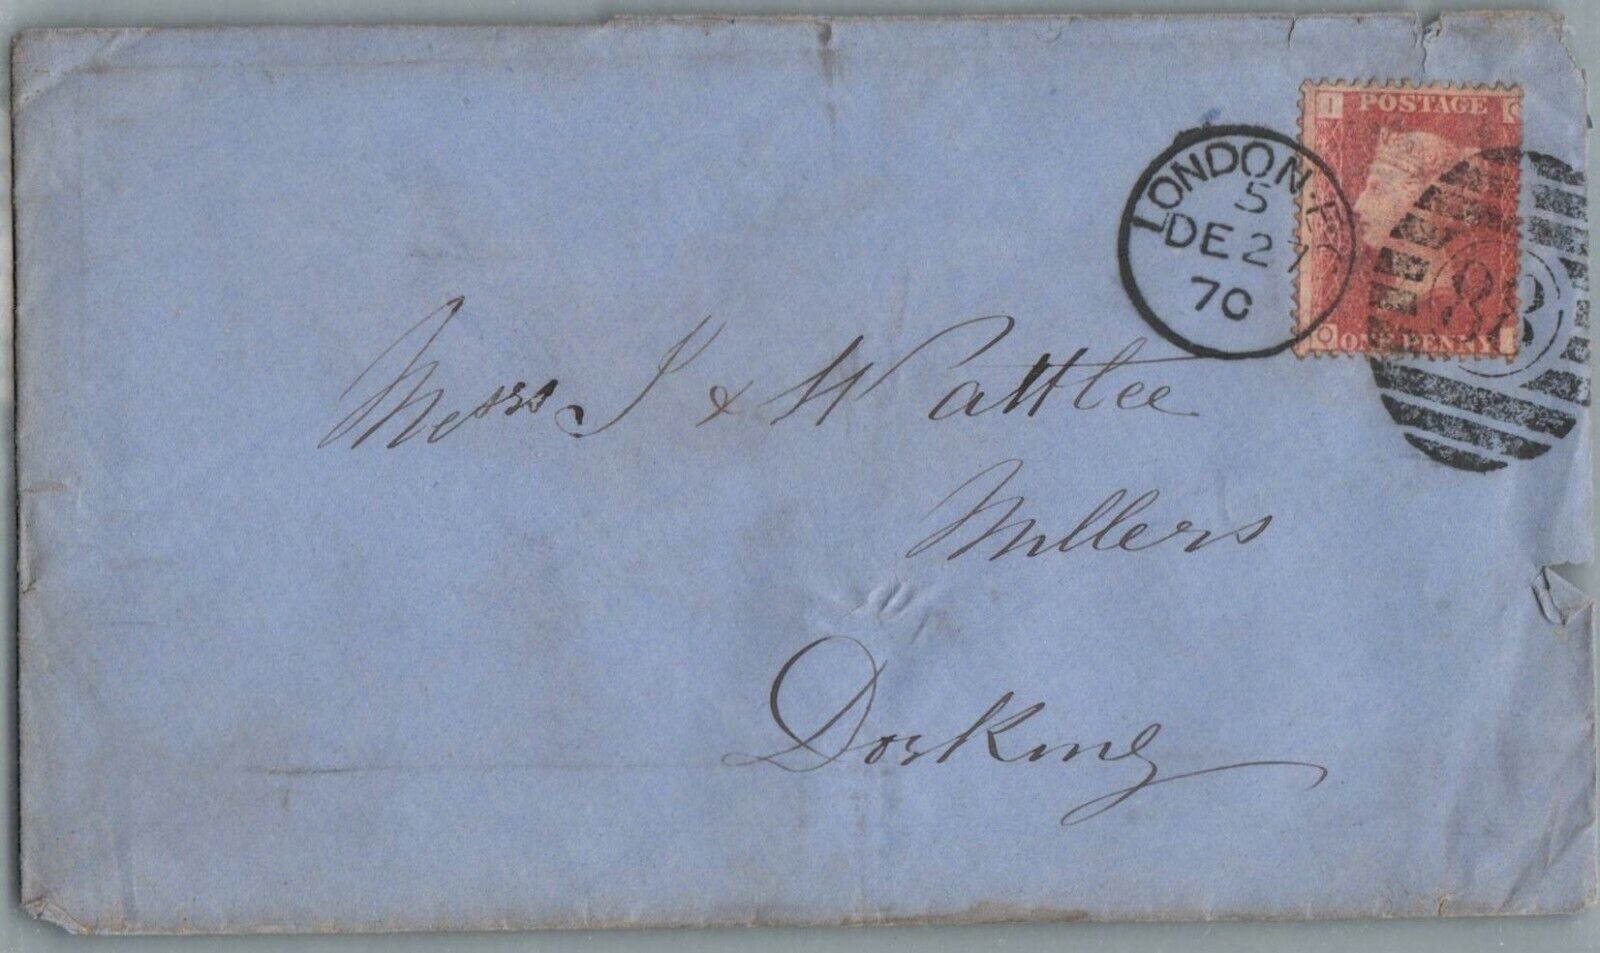 I POSTAGE
LONDON. E.C
5
DE 27
70
83
O ONE PENNY I
Messrs J & W Attlee
Millers
Dorking